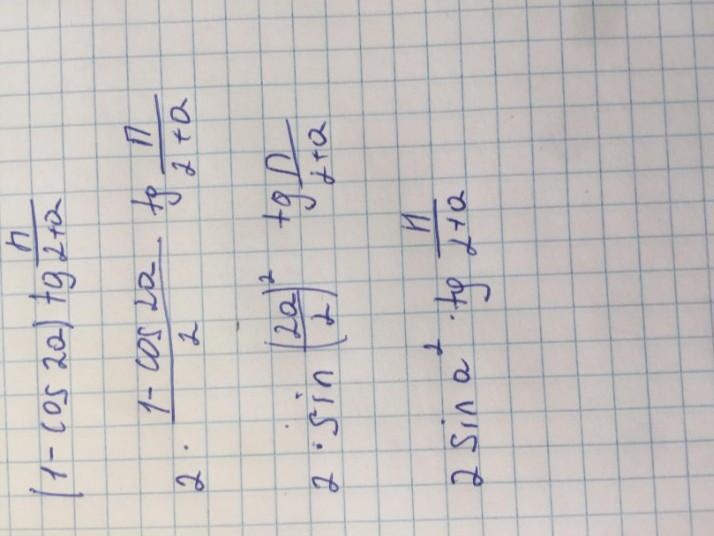 (1 - cos 2a) tg п/(2+a)
2 · (1 - cos 2a)/2 tg П/(2+a)
2 · sin (2a/2)² tg П/(2+a)
2 sin a² · tg П/(2+a)